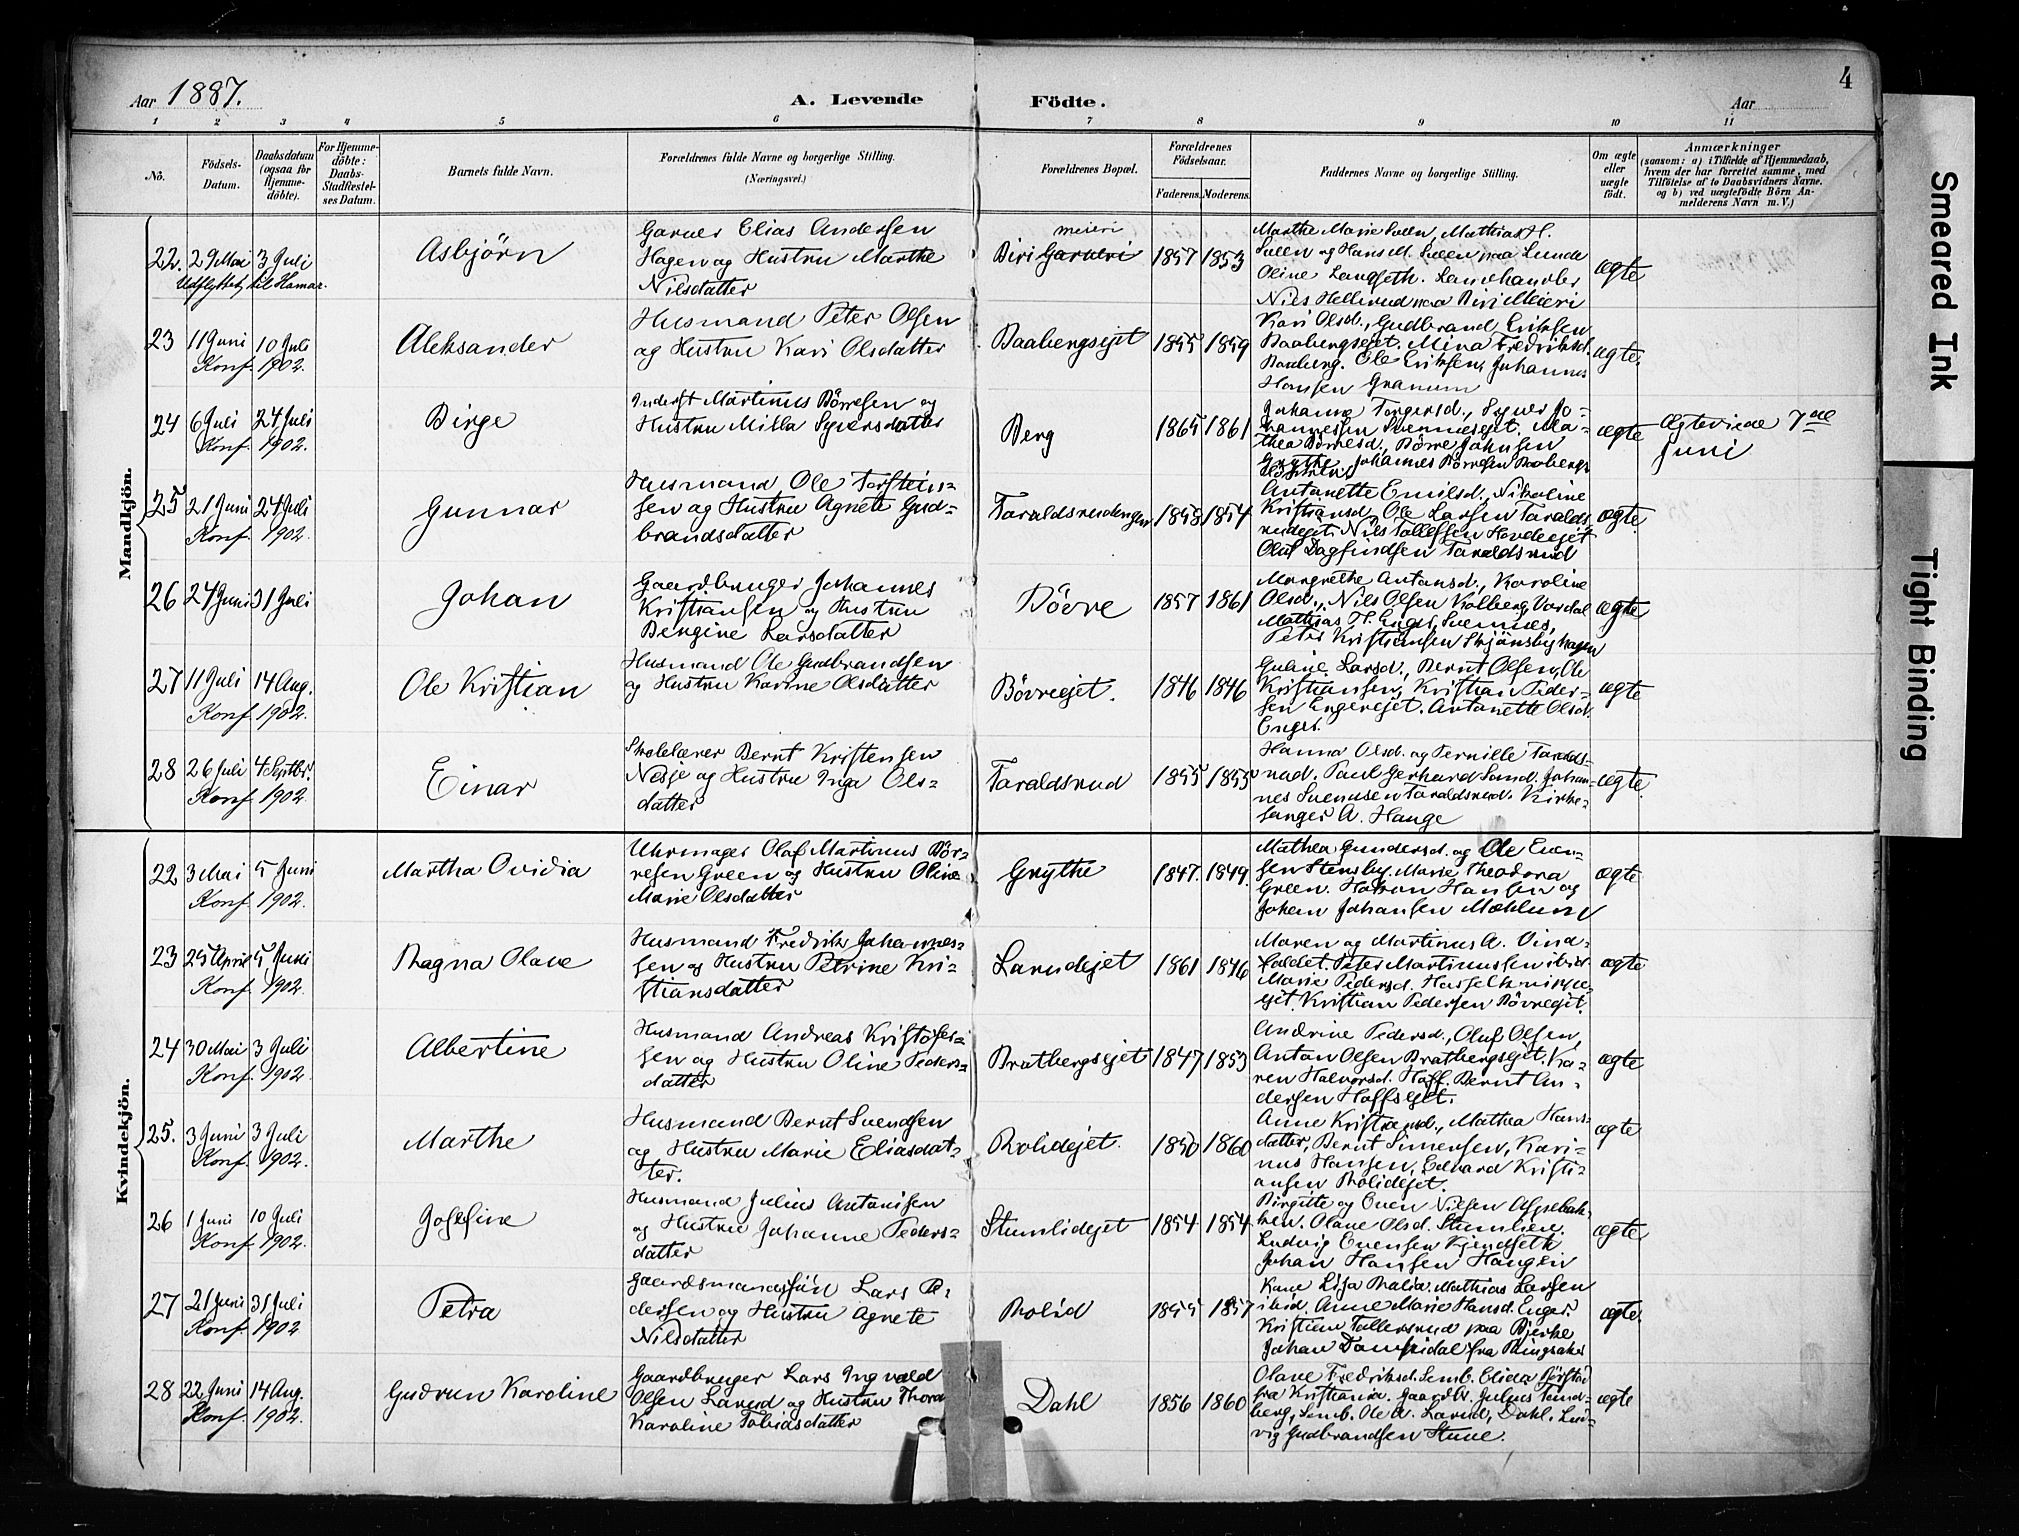 Aar 1887.
A. Levende Födte.
Aar
4
1 2 3 4 5 6 7 8 9 10 11
No.
Födsels-Datum.
Daabsdatum (ogsaa for Hjemme-döbte).
For Hjemme-döbte: Daabs-Stadfæstel-ses Datum.
Barnets fulde Navn.
Forældrenes fulde Navne og borgerlige Stilling. (Næringsvei.)
Forældrenes Bopæl.
Forældrenes Födselsaar.
Faderens. Moderens.
Faddernes Navne og borgerlige Stilling.
Om ægte eller uægte födt.
Anmærkninger (saasom: a) i Tilfælde af Hjemmedaab, hvem der har forrettet samme, med Tilföielse af to Daabsvidners Navne, og b) ved uægtefödte Börn An-melderens Navn m. V.)
Mandkjön.
22. 29 Mai 3 Juli
Udflyttet til Hamar.
Asbjörn
Garver Elias Andersen
Hagen og Hustru Marthe
Nilsdatter
meieri
Biri Garveri
1857 1853
Marthe Marie Sveen, Mathias H.
Sveen og Hans M. Sveen paa Lunde
Oline Langseth. Landhandler
Nils Hellerud paa Biri Meieri
ægte
23 11 Juni 10 Juli
Konf. 1902.
Aleksander
Husmand Peter Olsen
og Hustru Kari Olsdatter
Baabergsejet
1855 1859
Kari Olsd., Gudbrand Eriksen
Baabergsejet. Mina Fredriksd.
Baaberg. Ole Eriksen, Johannes
Hansen Granum
ægte.
24 6 Juli 24 Juli
Konf. 1902.
Birge
Inderst Martinus Börresen og
Hustru Milla Syversdatter
Berg
1865 1861
Johanne Torgersd., Syver Jo-
hannessen Svennesejet. Ma-
thea Börresd., Börre Johnsen
Grythe, Johannes Börresen Baabergs
ægte
Ægteviede 7de
Juni
25 21 Juni 24 Juli
Konf. 1902.
Gunnar
Husmand Ole Torstein-
sen og Hustru Agnete Gud-
brandsdatter
Taraldsrudengen
1858 1854
Antonette Emilsd., Nikoline
Kristiansd., Ole Larsen Taralds-
rudejet. Nils Tollefsen Hovdeejet
Olaf Dagfindsen Taraldsrud
ægte.
26 24 Juni 31 Juli
Johan
Gaardbruger Johannes
Kristiansen og Hustru
Bergine Larsdatter
Bövre
1857 1861
Margrethe Antonsd., Karoline
Olsd., Nils Olsen Kolberg, Vardal
Mathias H. Enger, Svennes,
Peter Kristiansen Skjönsbyhagen
ægte
27 11 Juli 14 Aug.
Konf. 1902.
Ole Kristian
Husmand Ole Gudbrandsen
og Hustru Karine Olsdatter
Bövreejet.
1846 1846
Guline Larsd., Bernt Olsen, Ole
Kristiansen, Kristian Peder-
sen Engerejet. Antonette Olsd.
Enger.
ægte
28 26 Juli 4 Septbr.
Konf. 1902.
Einar
Skolelærer Bernt Kristensen
Nesje og Hustru Inga Ols-
datter
Taraldsrud
1855 1855
Hanna Olsd. og Pernille Taralds-
rud. Paul Gerhard Sand. Johan-
nes Svendsen Taraldsrud. Kirke-
sanger A. Hauge
ægte.
Kvindekjön.
22 3 Mai 5 Juni
Konf. 1902.
Martha Ovidia
Uhrmager Olaf Martinus Bör-
resen Green og Hustru Oline
Marie Olsdatter
Grythe
1847. 1849.
Mathea Gundersd. og Ole Even-
sen Stensby. Marie Theodora
Green. Haaron Hansen og
Johan Johansen Mæhlum
ægte
23 25 April 5 Juni
Konf. 1902.
Ragna Olave
Husmand Fredrik Johannes-
sen og Hustru Petrine Kri-
stiansdatter
Larudejet
1861 1846
Maren og Martinus A. Vind-
faldet. Peter Martinussen ibid.
Marie Pedersd. Hasselknippe-
ejet. Kristian Pedersen Bövreejet.
ægte
24 30 Mai 3 Juli
Konf. 1902.
Albertine
Husmand Andreas Kristofer-
sen og Hustru Oline Peders-
datter
Bratbergsejet
1847 1853
Andrine Pedersd., Oluf Olsen,
Anton Olsen Bratbergsejet. Ka-
ren Halvorsd. Hoff. Bernt An-
dersen Hoffsejet.
ægte
25. 3 Juni 3 Juli
Konf. 1902.
Marthe
Husmand Bernt Svendsen
og Hustru Marie Eliasdat-
ter.
Rolidejet.
1850 1860
Anne Kristiansd., Mathea Hans-
datter, Bernt Simensen, Kari-
nus Hansen, Edvard Kristi-
ansen Rolidejet.
ægte
26 1 Juni 10 Juli
Konf. 1902.
Josefine
Husmand Julius Antonisen
og Hustru Johanne Peders-
datter
Stumlidejet
1854 1854
Birgitte og Even Nilsen Aspebak-
ken. Olave Olsd. Stumlien.
Ludvig Evensen Kjendseth
Johan Hansen Haugen
ægte
27 21 Juni 31 Juli
Konf. 1902
Petra
Gaardsmandssön Lars Pe-
dersen og Hustru Agnete
Nilsdatter
Rolid
1855 1857
Kane Lisa Rolid. Mathias Larsen
ibid. Anne Marie Hansd. Enger.
Kristian Tollersrud paa Bjerke
Johan fra Ringsaker
ægte.
28 22 Juni 14 Aug.
Konf. 1902.
Gudrun Karoline
Gaardbruger Lars Ingvald
Olsen Larud og Hustru Thora
Karoline Tobiasdatter
Dahl
1856 1860
Olave Fredriksd. Semb. Elida
fra Kristiania. Gaardbr. Julius Sund-
berg, Semb. Ole A. Larud, Dahl. Lud-
vig Gudbrandsen Stune.
ægte
Smeared Ink
Tight Binding